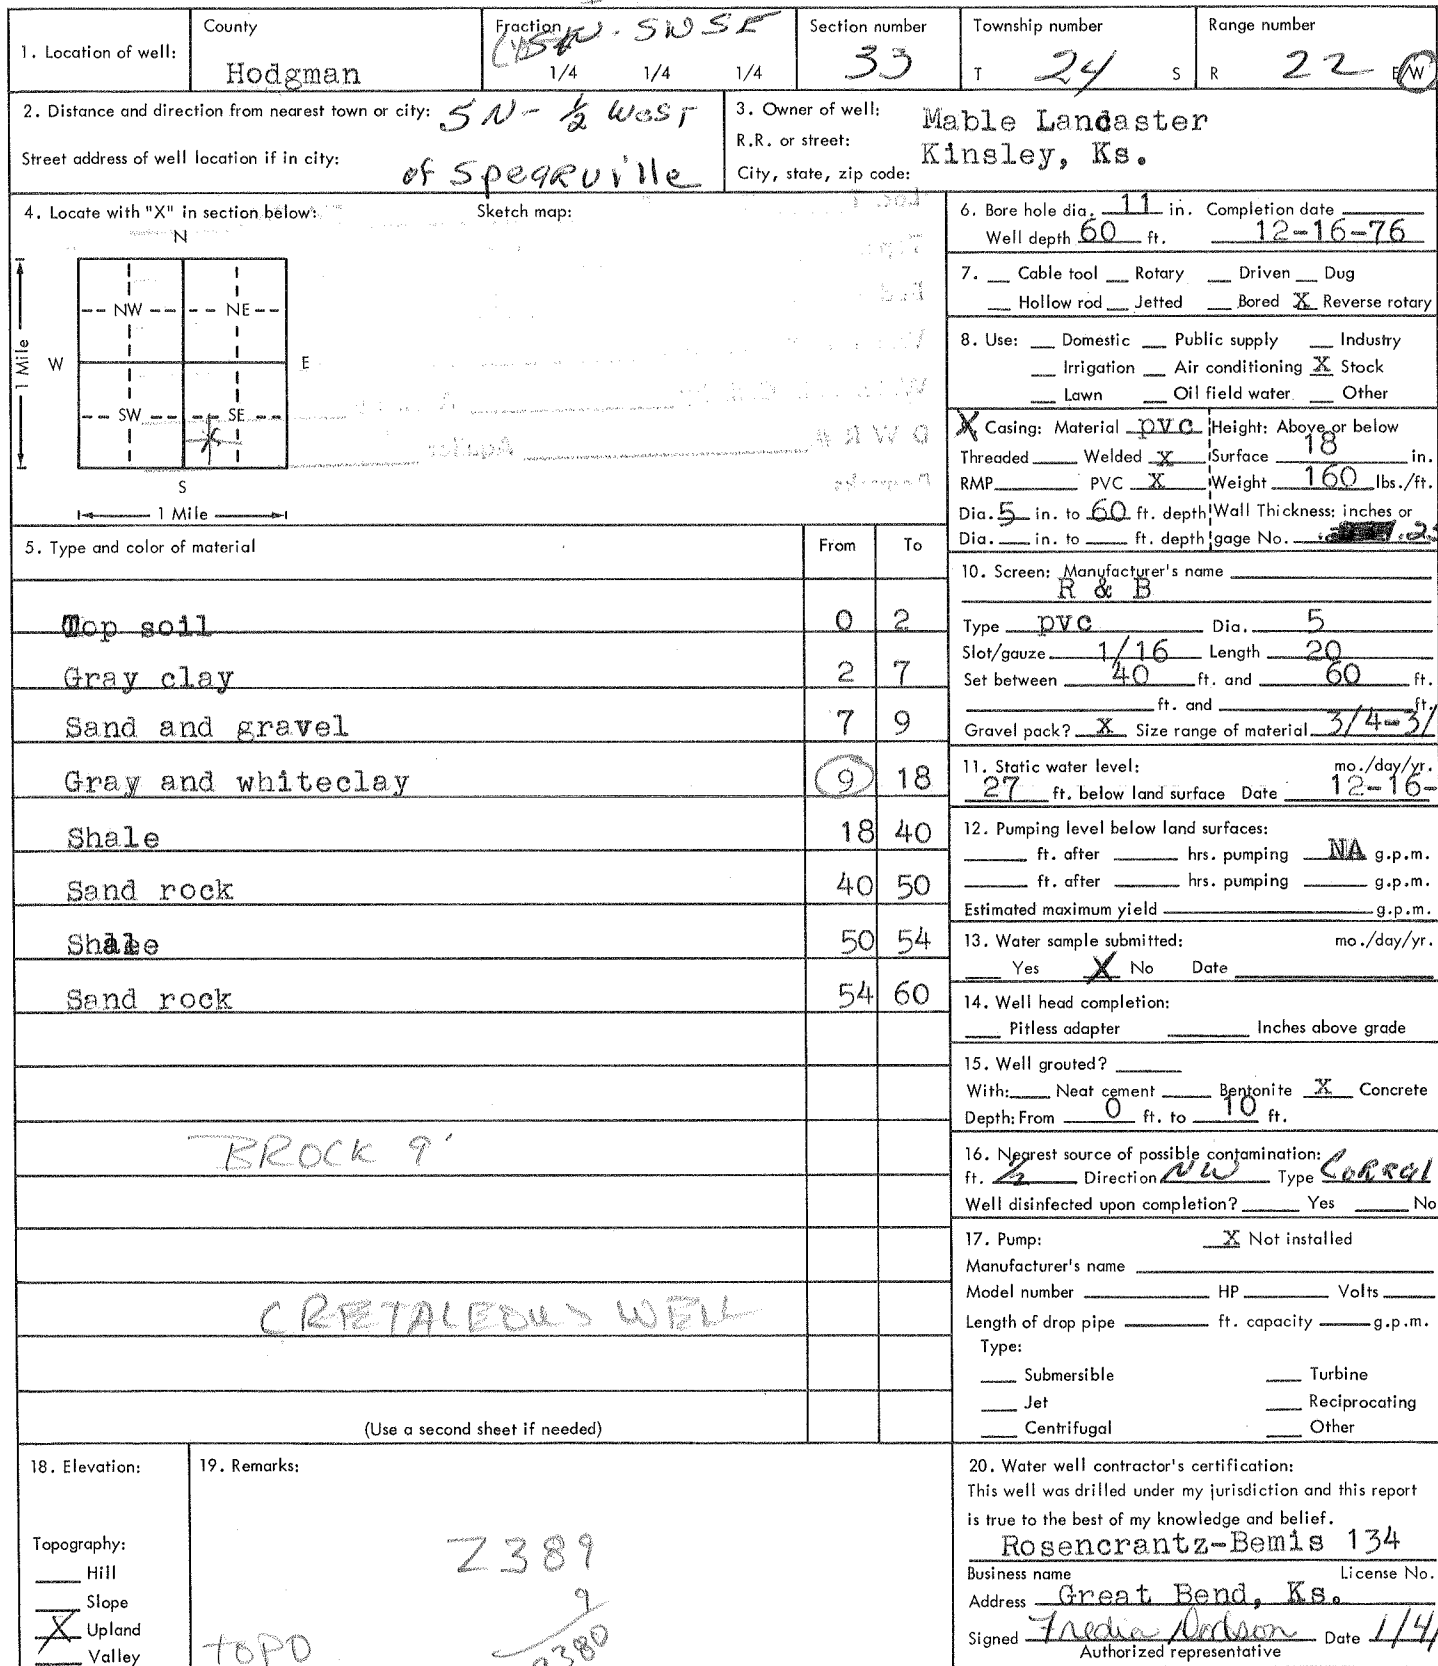 1. Location of well: County Hodgman Fraction SW SWSE 1/4 1/4 1/4 Section number 33 Township number T 24 S Range number R 22 E W
2. Distance and direction from nearest town or city: 5N - 1/2 West
Street address of well location if in city: of Spearville
3. Owner of well: Mable Landaster
R.R. or street: Kinsley, Ks.
City, state, zip code:
4. Locate with "X" in section below: Sketch map:
N
NW NE
W E
1 Mile
SW SE
X
S
1 Mile
5. Type and color of material From To
Top soil 0 2
Gray clay 2 7
Sand and gravel 7 9
Gray and whiteclay 9 18
Shale 18 40
Sand rock 40 50
Shale 50 54
Sand rock 54 60
BROCK 9'
CRETALEOUS WELL
(Use a second sheet if needed)
6. Bore hole dia. 11 in. Completion date
Well depth 60 ft. 12-16-76
7. Cable tool Rotary Driven Dug
Hollow rod Jetted Bored X Reverse rotary
8. Use: Domestic Public supply Industry
Irrigation Air conditioning X Stock
Lawn Oil field water Other
X Casing: Material pvc Height: Above or below
Threaded Welded X Surface 18 in.
RMP PVC X Weight 160 lbs./ft.
Dia. 5 in. to 60 ft. depth Wall Thickness: inches or
Dia. in. to ft. depth gage No. .25
10. Screen: Manufacturer's name
R & B
Type pvc Dia. 5
Slot/gauze 1/16 Length 20
Set between 40 ft. and 60 ft.
ft. and ft.
Gravel pack? X Size range of material 3/4-3/
11. Static water level: mo./day/yr.
27 ft. below land surface Date 12-16-
12. Pumping level below land surfaces:
ft. after hrs. pumping NA g.p.m.
ft. after hrs. pumping g.p.m.
Estimated maximum yield g.p.m.
13. Water sample submitted: mo./day/yr.
Yes X No Date
14. Well head completion:
Pitless adapter Inches above grade
15. Well grouted?
With: Neat cement Bentonite X Concrete
Depth: From 0 ft. to 10 ft.
16. Nearest source of possible contamination:
ft. 1/2 Direction NW Type Corral
Well disinfected upon completion? Yes No
17. Pump: X Not installed
Manufacturer's name
Model number HP Volts
Length of drop pipe ft. capacity g.p.m.
Type:
Submersible Turbine
Jet Reciprocating
Centrifugal Other
18. Elevation:
Topography:
Hill
Slope
X Upland
Valley
19. Remarks:
2389
9
2380
TOPO
20. Water well contractor's certification:
This well was drilled under my jurisdiction and this report
is true to the best of my knowledge and belief.
Rosencrantz-Bemis 134
Business name License No.
Address Great Bend, Ks.
Signed Fredia Dodson Date 1/4/
Authorized representative